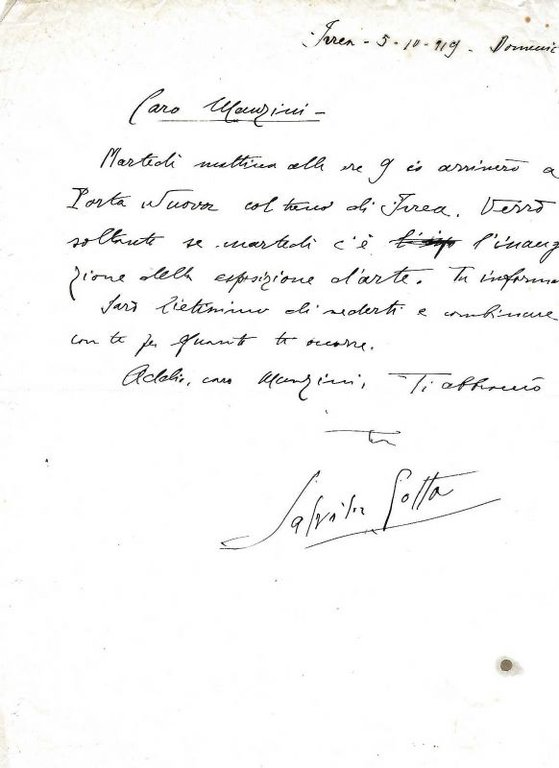 Ivrea - 5-10-919 - Domenic
Caro Manzini -
Martedì mattina alle ore 9 io arriverò a
Porta Nuova col treno di Ivrea. Verrò
soltanto se martedì c'è l'inaug
zione della esposizione d'arte. Tu informa
Sarò lietissimo di vederti e combinare
con te per quanto ti occorre.
Addio, caro Manzini, Ti abbraccio
Tuo
Salvator Gotta